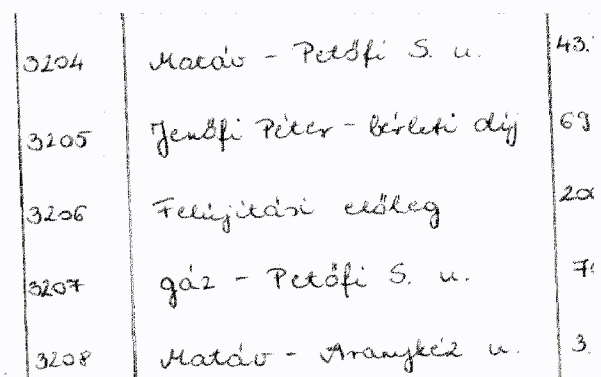 3204 Matáv - Petőfi S. u. 43.
3205 Jenőfi Péter - bérleti díj 69
3206 Felújítási előleg 200
3207 gáz - Petőfi S. u.
3208 Matáv - Aranykéz u. 3.